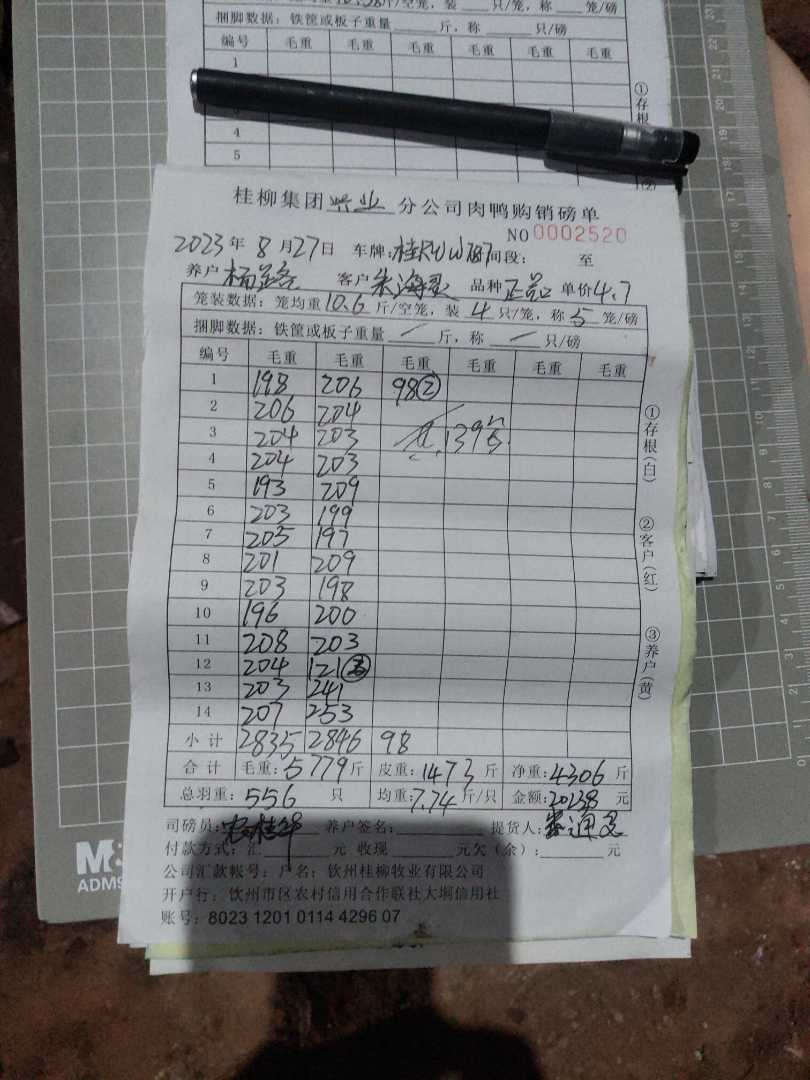 斤/空笼，装 只/笼，称 笼/磅
捆脚数据：铁筐或板子重量 斤，称 只/磅
编号 毛重 毛重 毛重 毛重 毛重 毛重
1
4
5
①存根
桂柳集团兴业分公司肉鸭购销磅单
NO 0002520
2023年8月27日 车牌：桂 时间段： 至
养户 杨 客户 朱海 品种 正品 单价4.7
笼装数据：笼均重10.6斤/空笼，装4只/笼，称5笼/磅
捆脚数据：铁筐或板子重量 / 斤，称 — 只/磅
编号 毛重 毛重 毛重 毛重 毛重 毛重
1 198 206 98②
2 206 204
3 204 203 139
4 204 203
5 193 209
6 203 199
7 205 197
8 201 209
9 203 198
10 196 200
11 208 203
12 204 121③
13 203 241
14 207 253
小计 2835 2846 98
合计 毛重：5779斤 皮重：1473斤 净重：4306斤
总羽重：556只 均重：7.74斤/只 金额：20238元
司磅员： 养户签名： 提货人：
付款方式：汇 元 收现 元欠（余）： 元
公司汇款帐号：户名：钦州桂柳牧业有限公司
开户行：钦州市区农村信用合作联社大垌信用社
账号：8023 1201 0114 4296 07
①存根（白）
②客户（红）
③养户（黄）